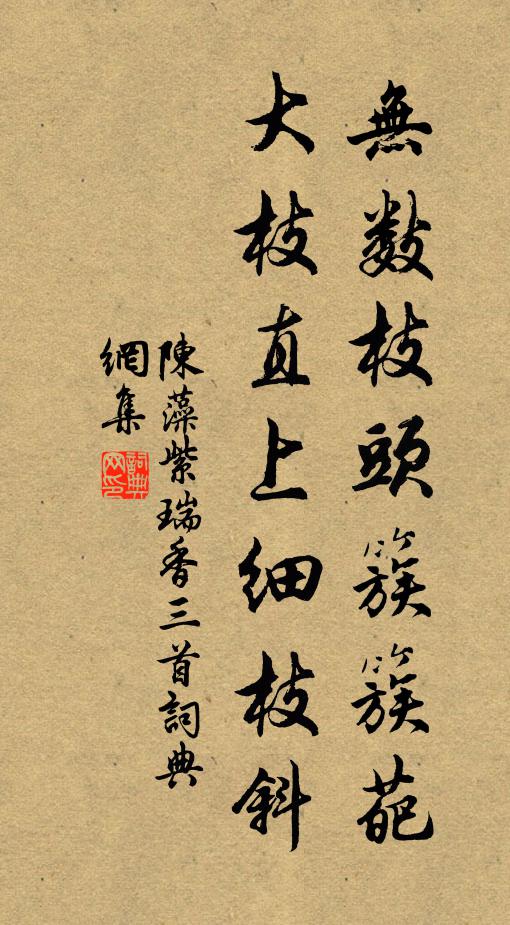 無數枝頭簇簇葩
大枝直上細枝斜
陳藻紫瑞香三首詞典
網集
詞典
网印